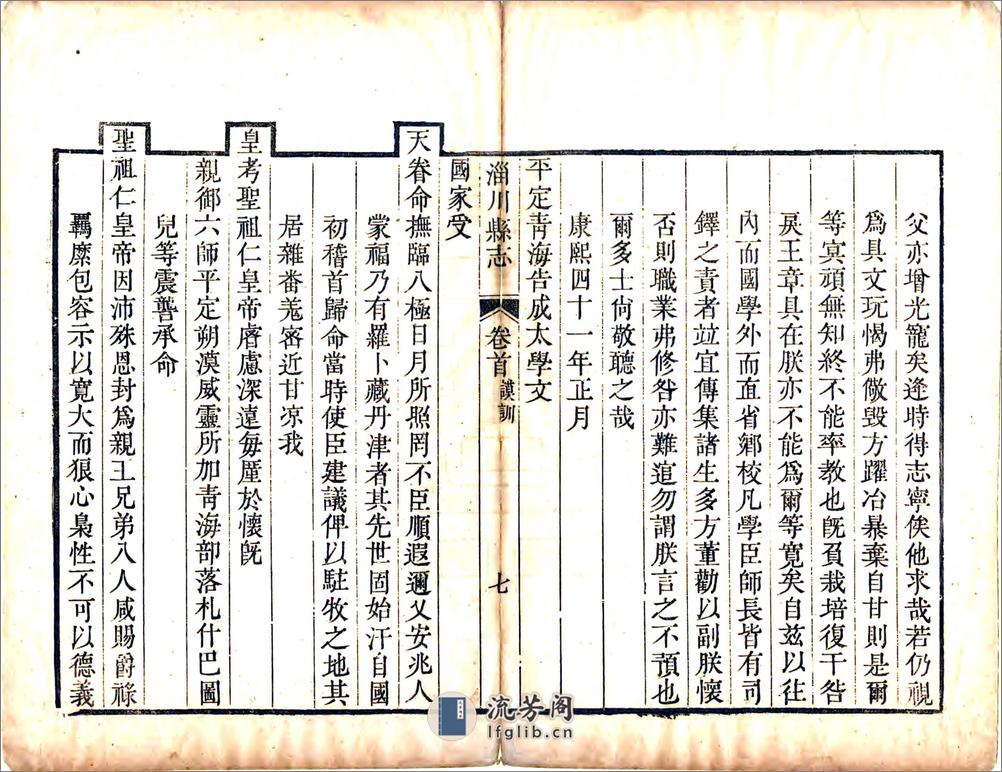 父亦增光寵矣逢時得志寧俟他求哉若仍視
爲具文玩愒弗儆毀方躍冶暴棄自甘則是爾
等冥頑無知終不能率教也旣負栽培復干咎
戾王章具在朕亦不能爲爾等寬矣自兹以往
內而國學外而直省鄉校凡學臣師長皆有司
鐸之責者竝宜傳集諸生多方董勸以副朕懷
否則職業弗修咎亦難逭勿謂朕言之不預也
爾多士尙敬聽之哉
康熙四十一年正月
平定青海告成太學文
淄川縣志 卷首 謨訓 七
國家受
天眷命撫臨八極日月所照罔不臣順遐邇乂安兆人
蒙福乃有羅卜藏丹津者其先世固始汗自國
初稽首歸命當時使臣建議俾以駐牧之地其
居雜番羗宻近甘凉我
皇考聖祖仁皇帝睿慮深遠毎厪於懷旣
親御六師平定朔漠威靈所加青海部落札什巴圖
兒等震讋承命
聖祖仁皇帝因沛殊恩封爲親王兄弟八人咸賜爵祿
羈縻包容示以寬大而狼心梟性不可以德義
流芳阁
lfglib.cn